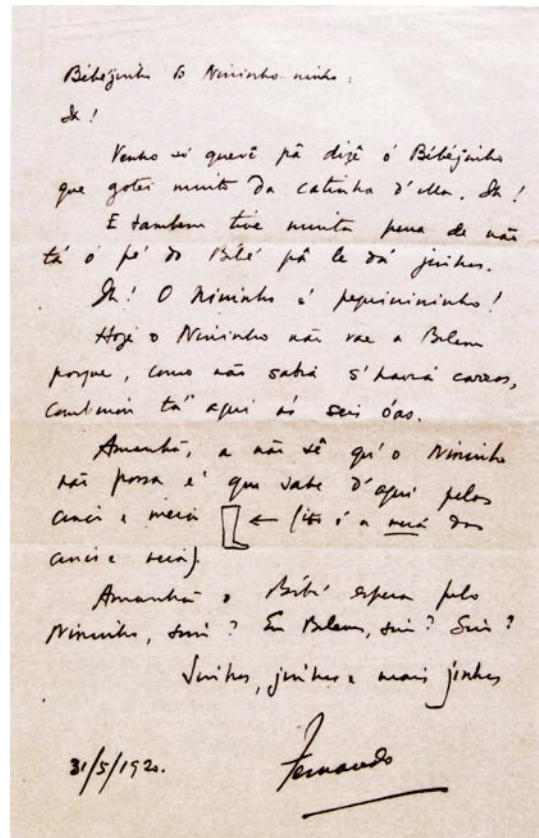 Bébéjinho do Nininho-ninho:
Oh!
Venho só quevê pâ dizê ó Bébéjinho
que gotei muito da catinha d'ella. Oh!
E tambem tive munta pena de não
tá ó pé do Bébé pâ le dá jinhos.
Oh! O Nininho é pequinininho!
Hoje o Nininho não vae a Belem
porque, como não sabia s' havia carros,
combinei tá aqui ás seis ó'as.
Amanhã, a não sê qu' o Nininho
não possa é que sahe d'aqui pelas
cinco e meia ← (isto é a meia das
cinco e meia).
Amanhã o Bébé espera pelo
Nininho, sim? Em Belem, sim? Sim?
Jinhos, jinhos e mais jinhos
31/5/1920.
Fernando